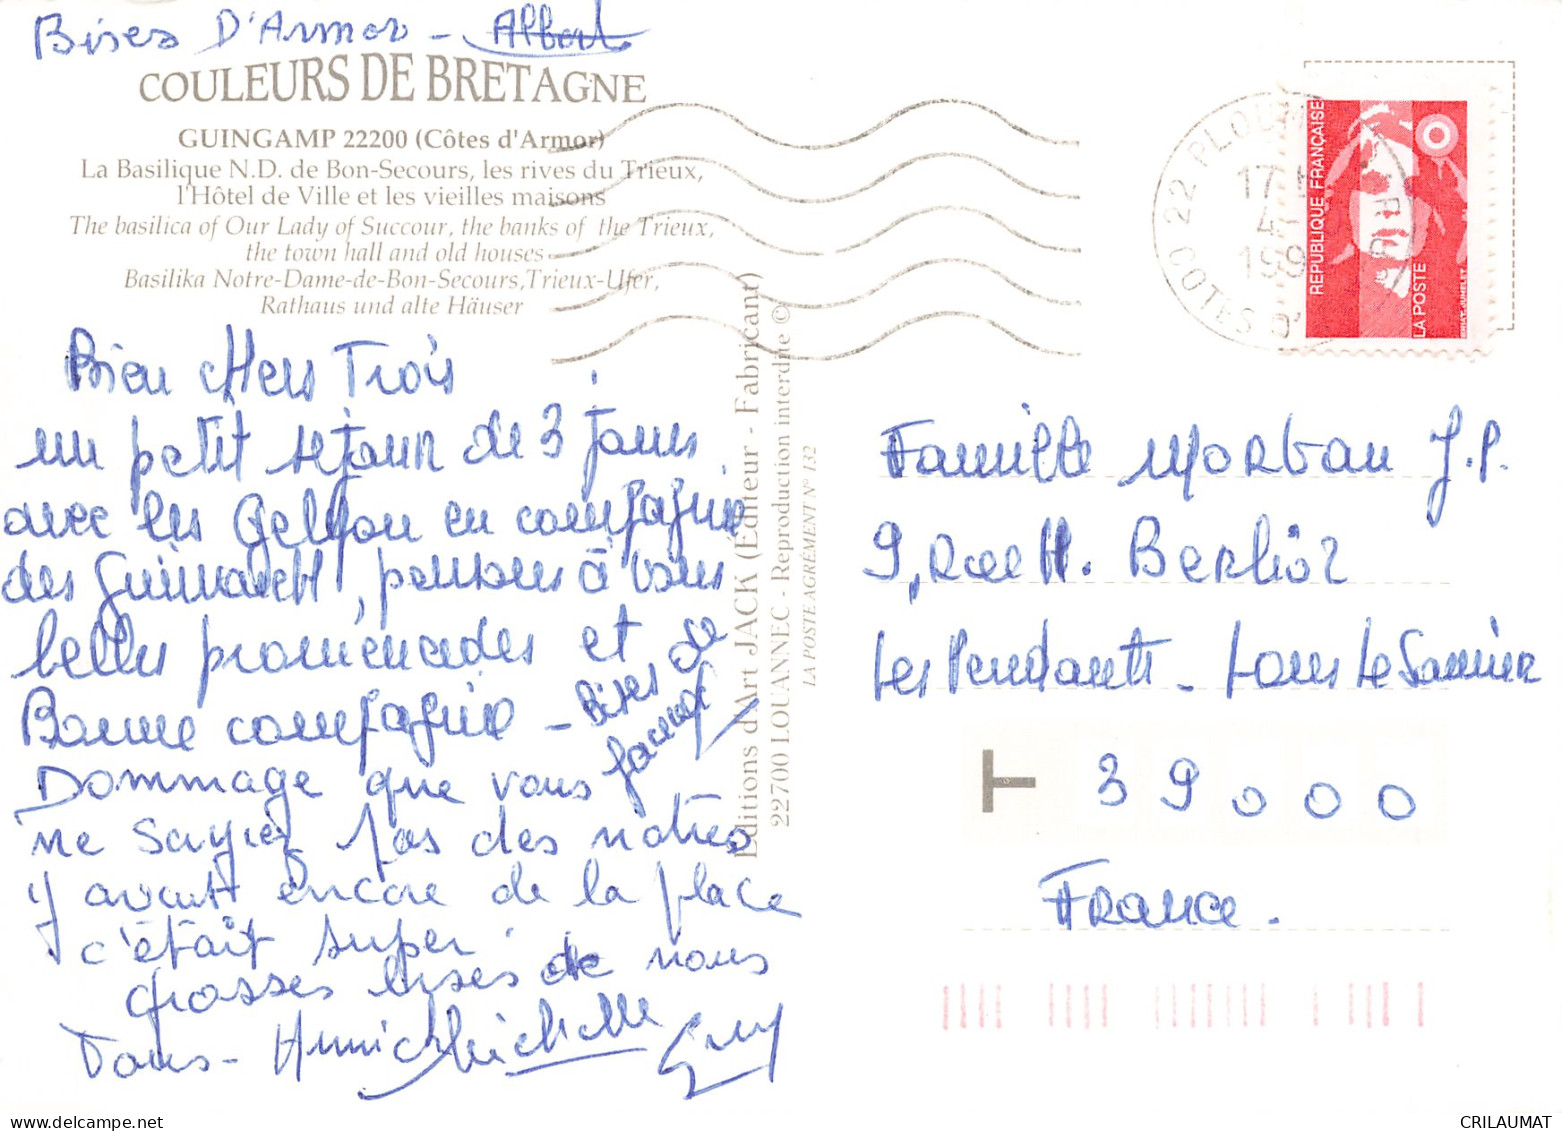 Bises D'Armor - Albert
COULEURS DE BRETAGNE
GUINGAMP 22200 (Côtes d'Armor)
La Basilique N.D. de Bon-Secours, les rives du Trieux,
l'Hôtel de Ville et les vieilles maisons
The basilica of Our Lady of Succour, the banks of the Trieux,
the town hall and old houses
Basilika Notre-Dame-de-Bon-Secours, Trieux-Ufer,
Rathaus und alte Häuser
Bien chers Trois
un petit séjour de 3 jours
avec les en compagnie
des , pensons à vous
belles promenades et de
Bonne compagnie -
Bises de
Dommage que vous
ne sayiez pas des notres
il y avait encore de la place
c'était super.
grosses bises de nous
Tous - Annick Michelle Guy
Editions d'Art JACK (Éditeur - Fabricant)
22700 LOUANNEC - Reproduction interdite ©
LA POSTE AGRÉMENT N° 132
22 PLOUM
17 H
4-
199
COTES D'
RÉPUBLIQUE FRANÇAISE
LA POSTE
Famille Morban J.P.
9, Rue H. Berlioz
Les Pendants - Lons Le Saunier
T 39000
France.
CRILAUMAT